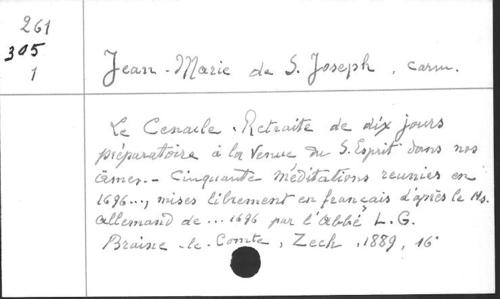 261
305
1
Jean-Marie de S. Joseph, carm.
Le Cenacle. Retraite de dix jours
préparatoire à la Venue du S. Esprit dans nos
âmes.- Cinquante méditations reunies en
1696..., mises librement en français d'après le Ms.
allemand de ... 1696 par l'abbé L. G.
Braine-le-Comte, Zech, 1889, 16°